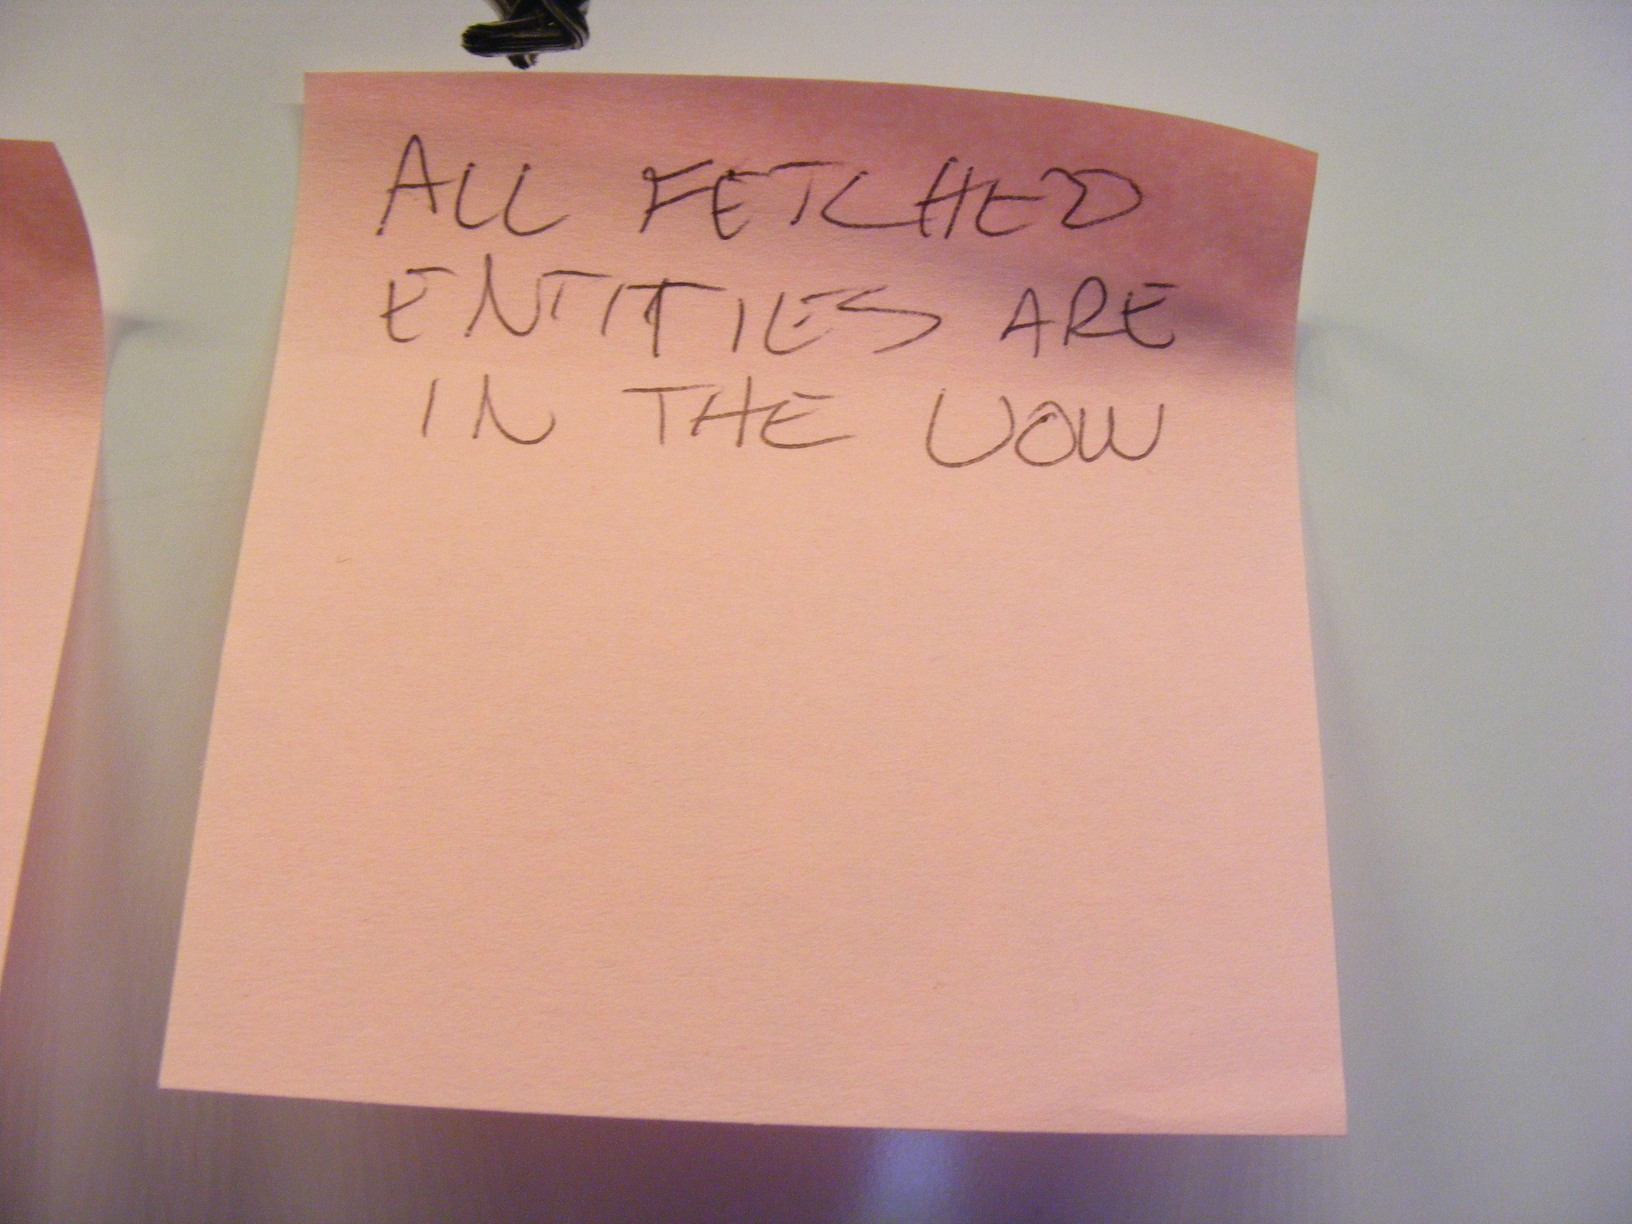 ALL FETCHED
ENTITIES ARE
IN THE UOW